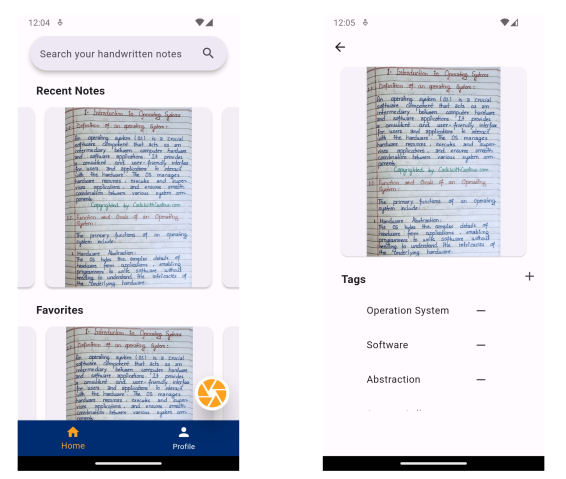 12:04
Search your handwritten notes
Recent Notes
1: Introduction to Operating System
Definition of an operating system:
An operating system (OS) is a crucial
software component that acts as an
intermediary between computer hardware
and software applications. It provides
a consistent and user-friendly interface
for users and applications to interact
with the hardware. The OS manages
hardware resources, executes and super-
vises applications, and ensures smooth
coordination between various system com-
ponents.
Copyrighted by CodeWithCurious.com
Function and Goals of an Operating
System:
The primary functions of an operating
system include:
Hardware Abstraction:
The OS hides the complex details of
hardware from applications, enabling
programmers to write software without
needing to understand the intricacies of
the underlying hardware.
Favorites
1: Introduction to Operating System
Definition of an operating system:
An operating system (OS) is a crucial
software component that acts as an
intermediary between computer hardware
and software applications. It provides
a consistent and user-friendly interface
for users and applications to interact
with the hardware. The OS manages
hardware resources, executes and super-
vises applications, and ensures smooth
coordination between various system com-
Home
Profile
12:05
1: Introduction to Operating System
Definition of an operating system:
An operating system (OS) is a crucial
software component that acts as an
intermediary between computer hardware
and software applications. It provides
a consistent and user-friendly interface
for users and applications to interact
with the hardware. The OS manages
hardware resources, executes and super-
vises applications, and ensures smooth
coordination between various system com-
ponents.
Copyrighted by CodeWithCurious.com
Function and Goals of an Operating
System:
The primary functions of an operating
system include:
Hardware Abstraction:
The OS hides the complex details of
hardware from applications, enabling
programmers to write software without
needing to understand the intricacies of
the underlying hardware.
Tags
Operation System
Software
Abstraction